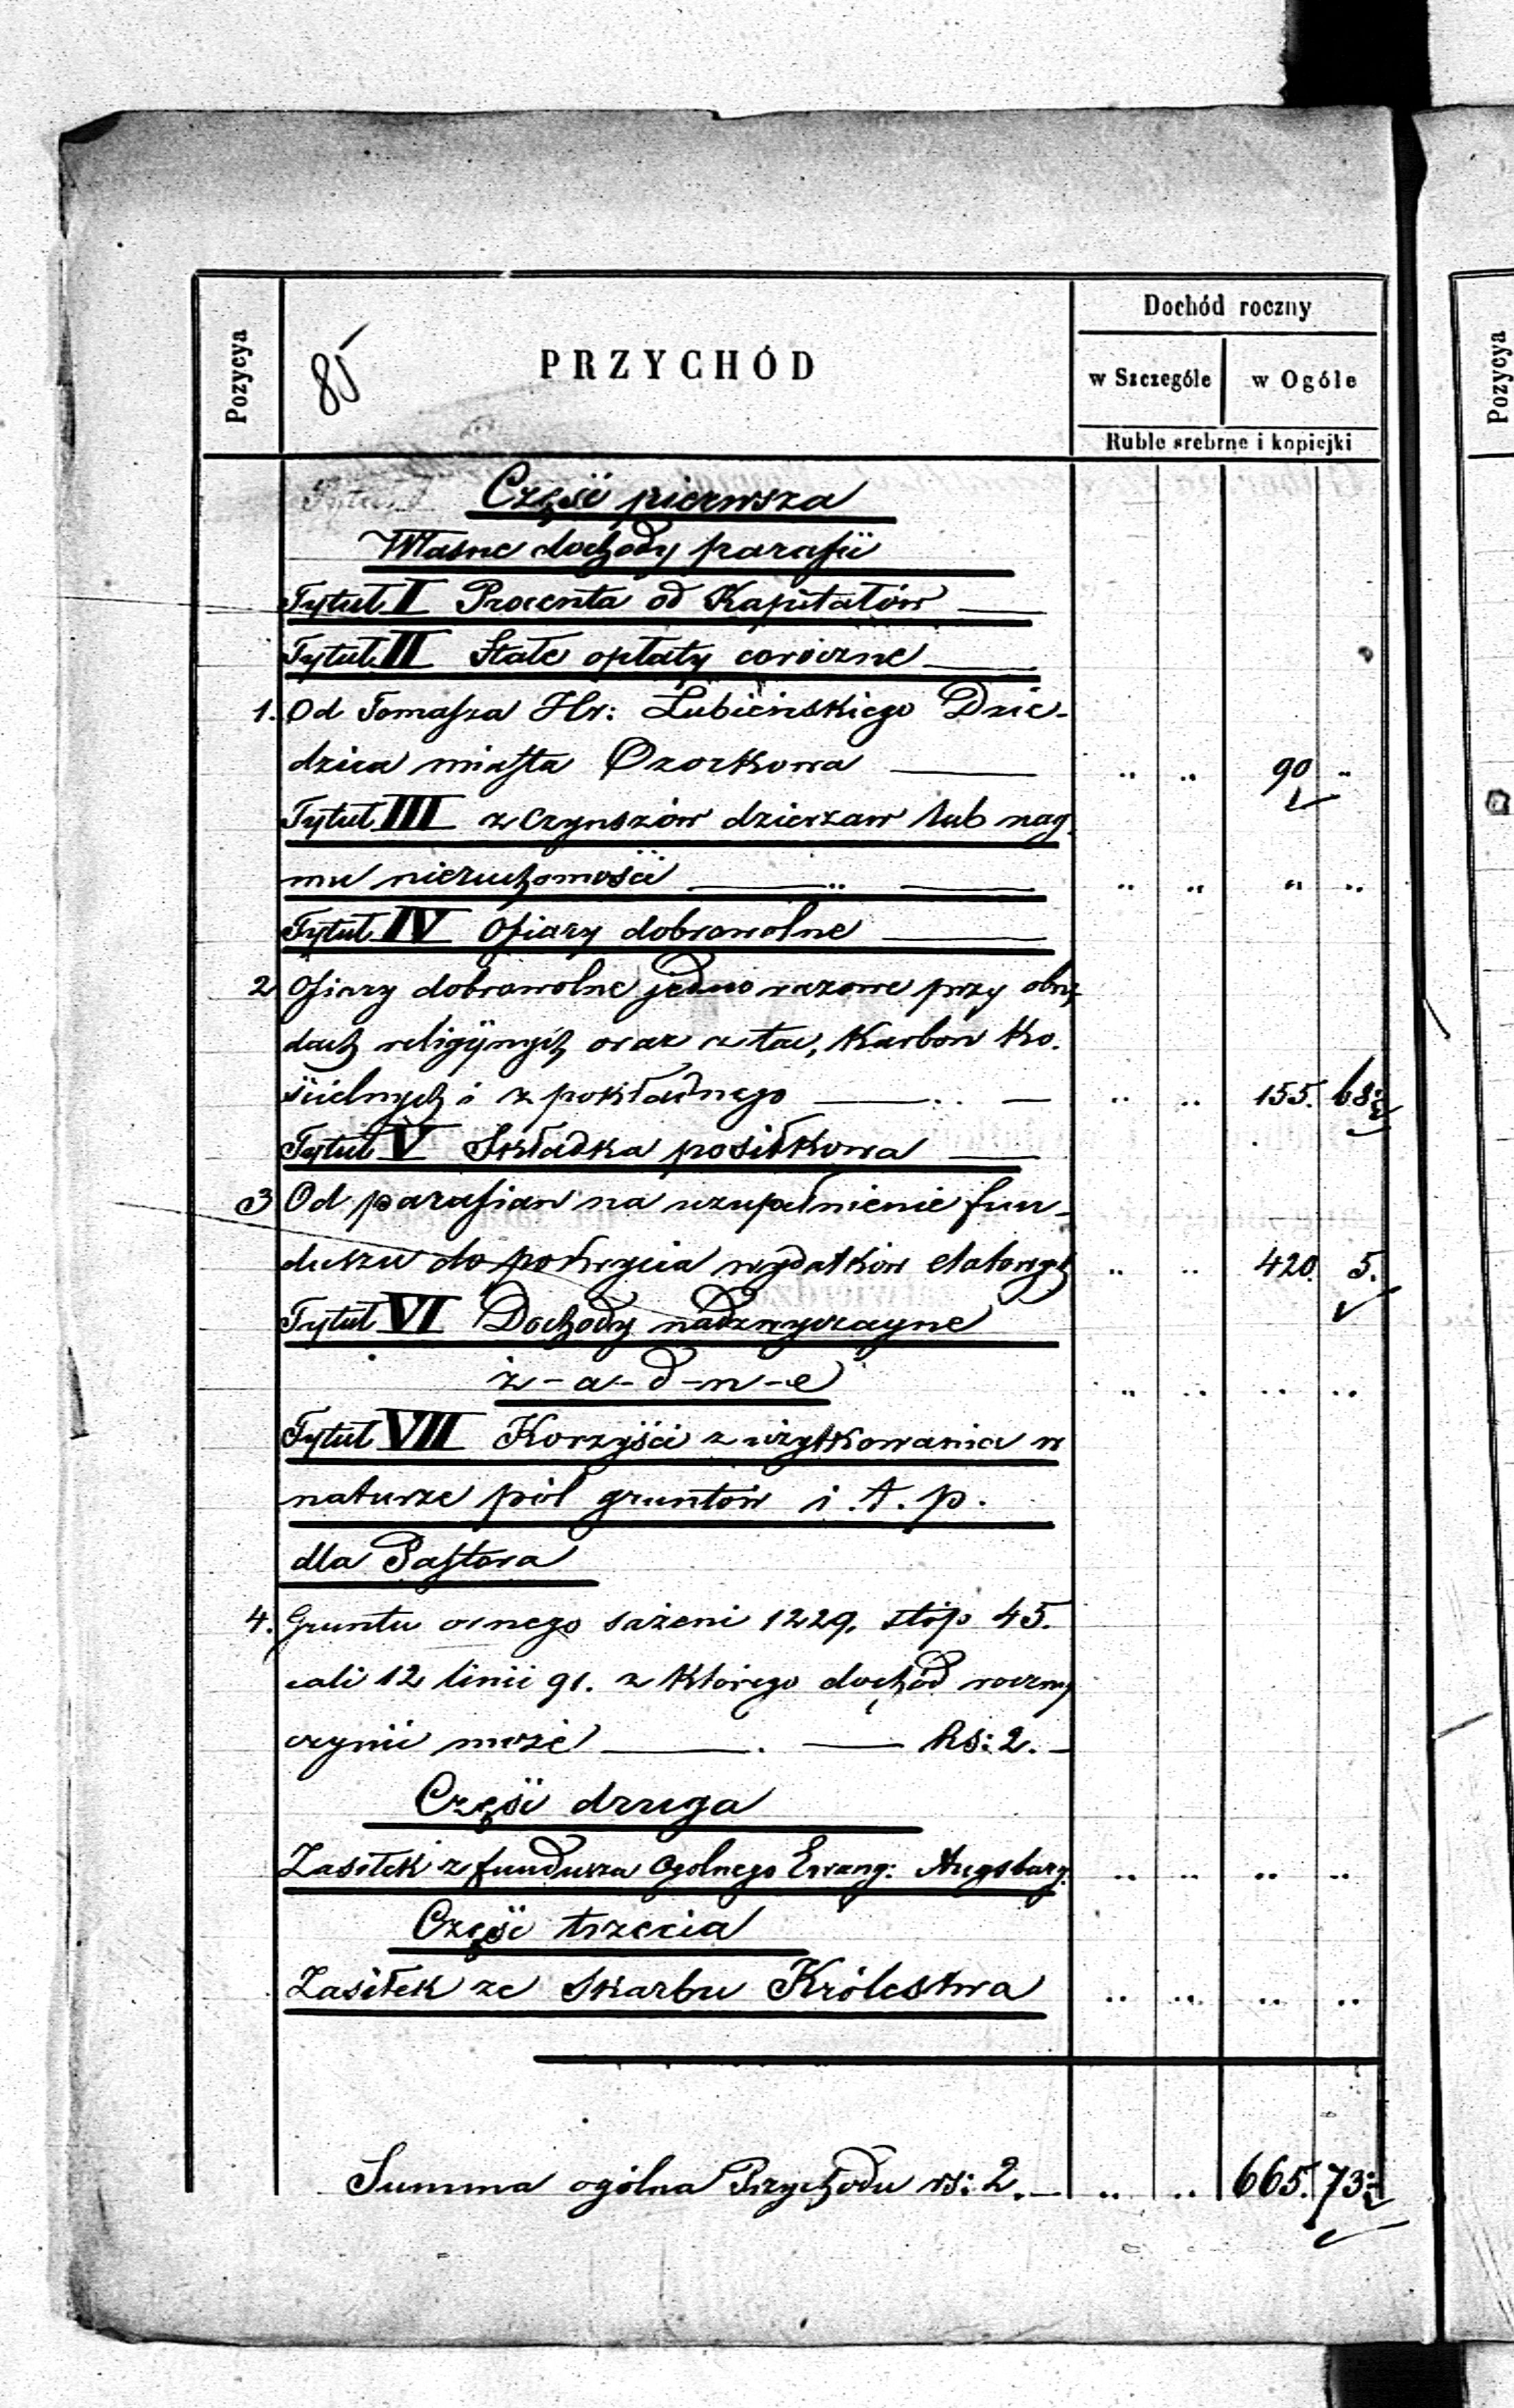 Pozycya
85
PRZYCHÓD
Dochód roczny
w Szczególe
w Ogóle
Ruble srebrne i kopiejki
Część pierwsza
Własne dochody parafii
Tytuł I Procenta od Kapitałów
Tytuł II Stałe opłaty coroczne
1. Od Tomasza Hr: Łubieńskiego Dzie-
dzica miasta Ozorkowa 90 ..
Tytuł III z Czynszów dzierżaw lub naj-
mu nieruchomości
Tytuł IV Ofiary dobrowolne
2 Ofiary dobrowolne jednorazowe przy obrzę
dach religijnych oraz z tac, Karbon Ko.
ścielnych i z pokładnego 155. 68½
Tytuł V Składka posiłkowa
3 Od parafian na uzupełnienie fun-
duszu do pokrycia wydatków etatowych 420. 5.
Tytuł VI Dochody nadzwyczajne
ż-a-d-n-e
Tytuł VII Korzyści z użytkowania w
naturze pól gruntów i.t.p.
dla Pastora
4. Gruntu ornego sażeni 1229. stóp 45.
cali 12 linii 91. z którego dochód roczny
czynić może Rs: 2. -
Część druga
Zasiłek z funduszu Ogolnego Ewang: Augsburg.
Część trzecia
Zasiłek ze Skarbu Królestwa
Summa ogólna Przychodu rs: 2. - 665. 73½
Pozycya